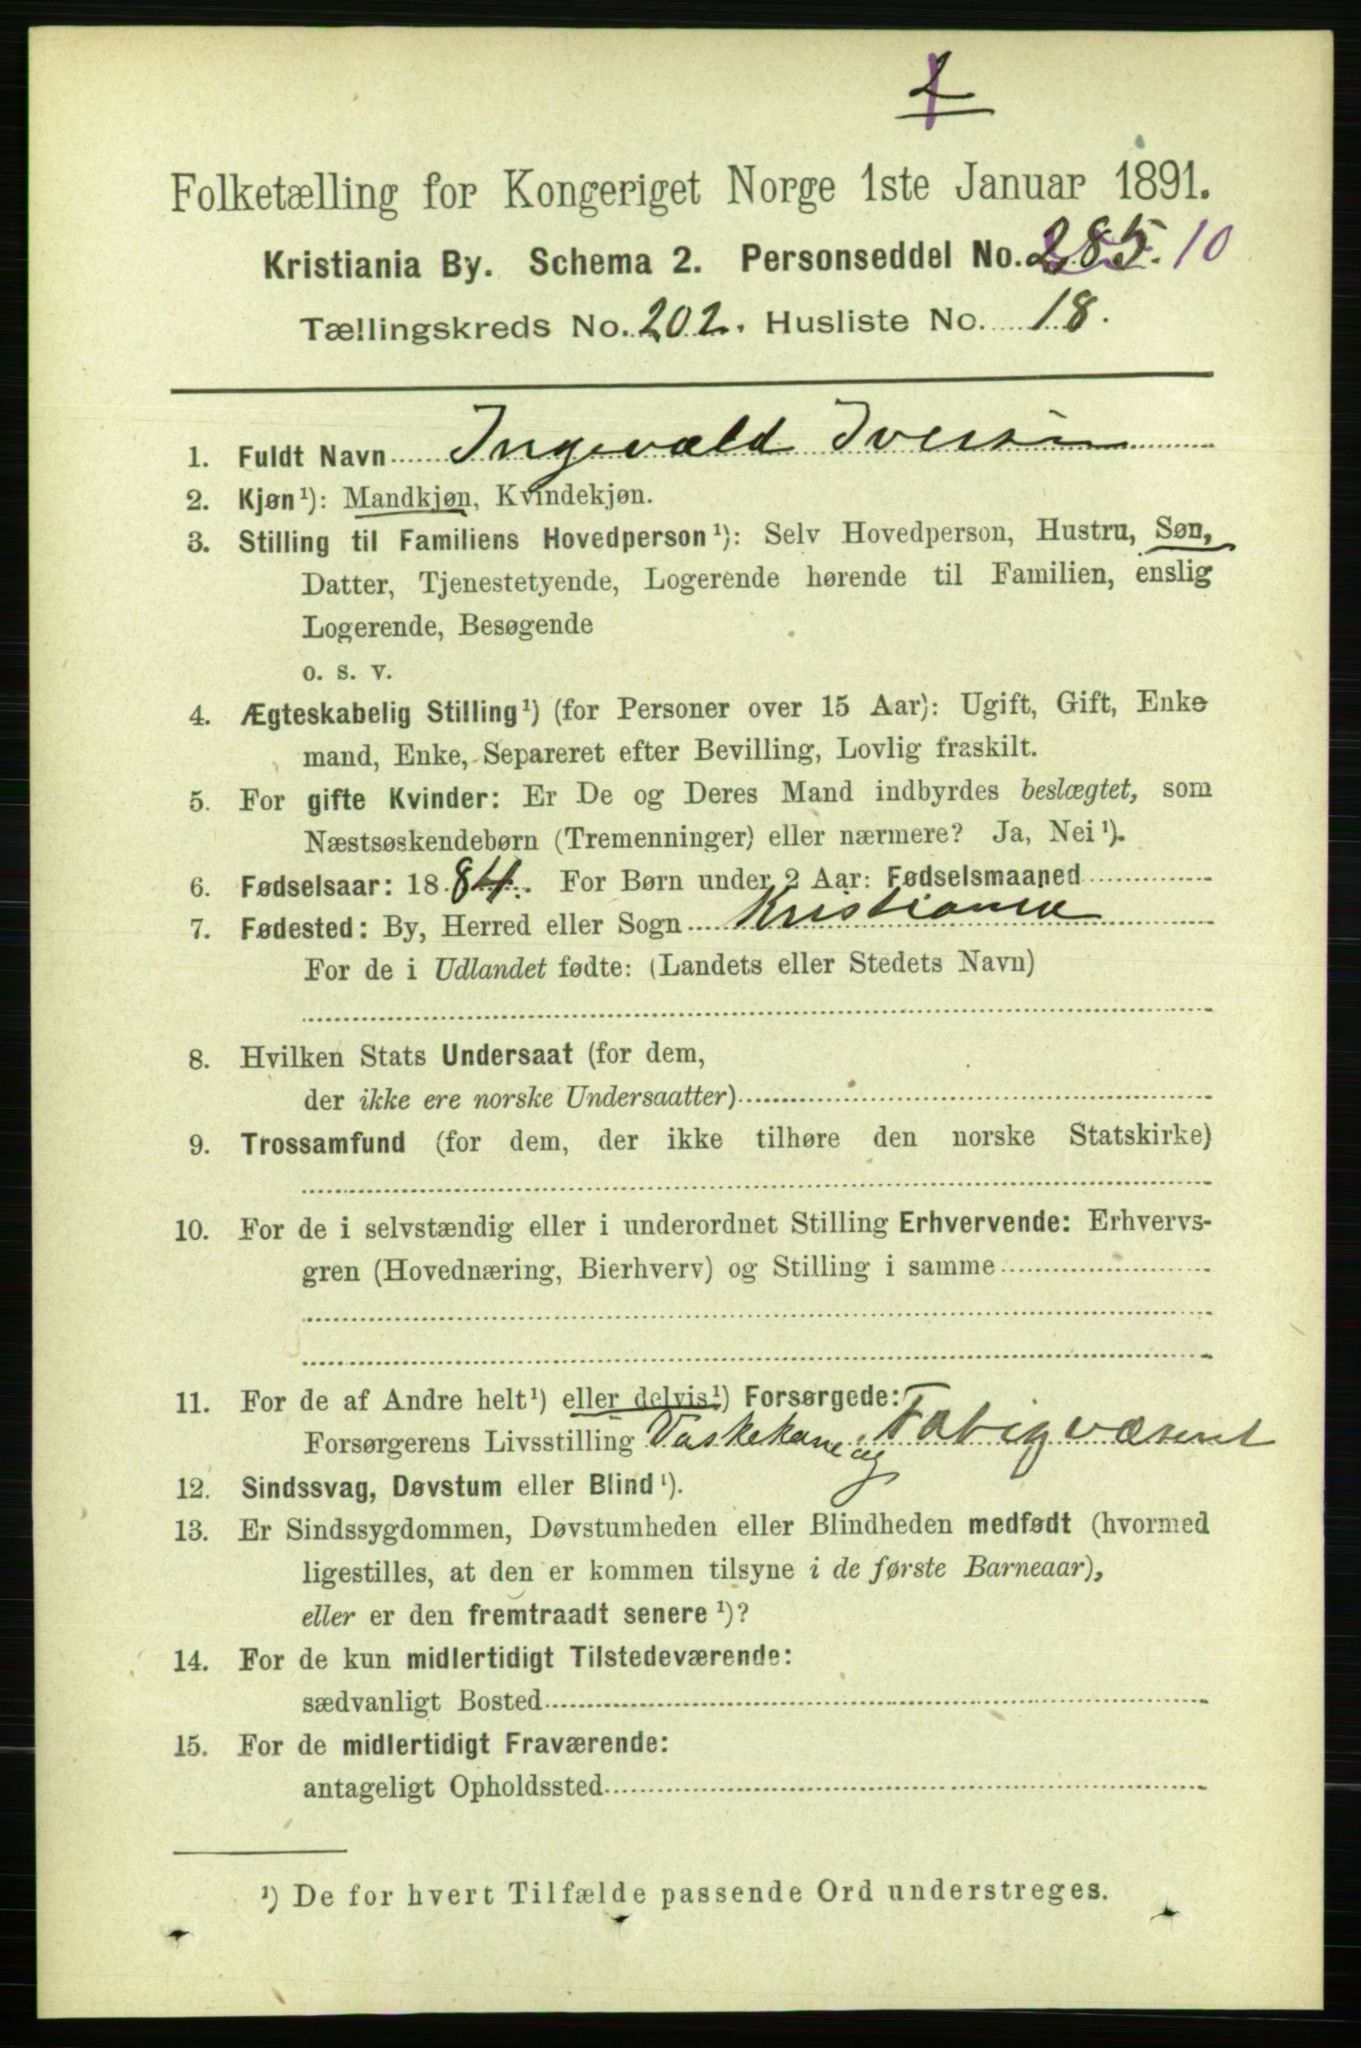 Folketælling for Kongeriget Norge 1ste Januar 1891.
Kristiania By. Schema 2. Personseddel No. 285. 10
Tællingskreds No. 202. Husliste No. 18.
1. Fuldt Navn Ingevald Iversen
2. Kjøn¹): Mandkjøn, Kvindekjøn.
3. Stilling til Familiens Hovedperson¹): Selv Hovedperson, Hustru, Søn,
Datter, Tjenestetyende, Logerende hørende til Familien, enslig
Logerende, Besøgende
o. s. v.
4. Ægteskabelig Stilling¹) (for Personer over 15 Aar): Ugift, Gift, Enke
mand, Enke, Separeret efter Bevilling, Lovlig fraskilt.
5. For gifte Kvinder: Er De og Deres Mand indbyrdes beslægtet, som
Næstsøskendebørn (Tremenninger) eller nærmere? Ja, Nei¹).
6. Fødselsaar: 1884. For Børn under 2 Aar: Fødselsmaaned
7. Fødested: By, Herred eller Sogn Kristiania
For de i Udlandet fødte: (Landets eller Stedets Navn)
8. Hvilken Stats Undersaat (for dem,
der ikke ere norske Undersaatter)
9. Trossamfund (for dem, der ikke tilhøre den norske Statskirke)
10. For de i selvstændig eller i underordnet Stilling Erhvervende: Erhvervs-
gren (Hovednæring, Bierhverv) og Stilling i samme
11. For de af Andre helt¹) eller delvis¹) Forsørgede:
Forsørgerens Livsstilling Vaskekone og Fatigvæsenet
12. Sindssvag, Døvstum eller Blind¹).
13. Er Sindssygdommen, Døvstumheden eller Blindheden medfødt (hvormed
ligestilles, at den er kommen tilsyne i de første Barneaar),
eller er den fremtraadt senere¹)?
14. For de kun midlertidigt Tilstedeværende:
sædvanligt Bosted
15. For de midlertidigt Fraværende:
antageligt Opholdssted
¹) De for hvert Tilfælde passende Ord understreges.